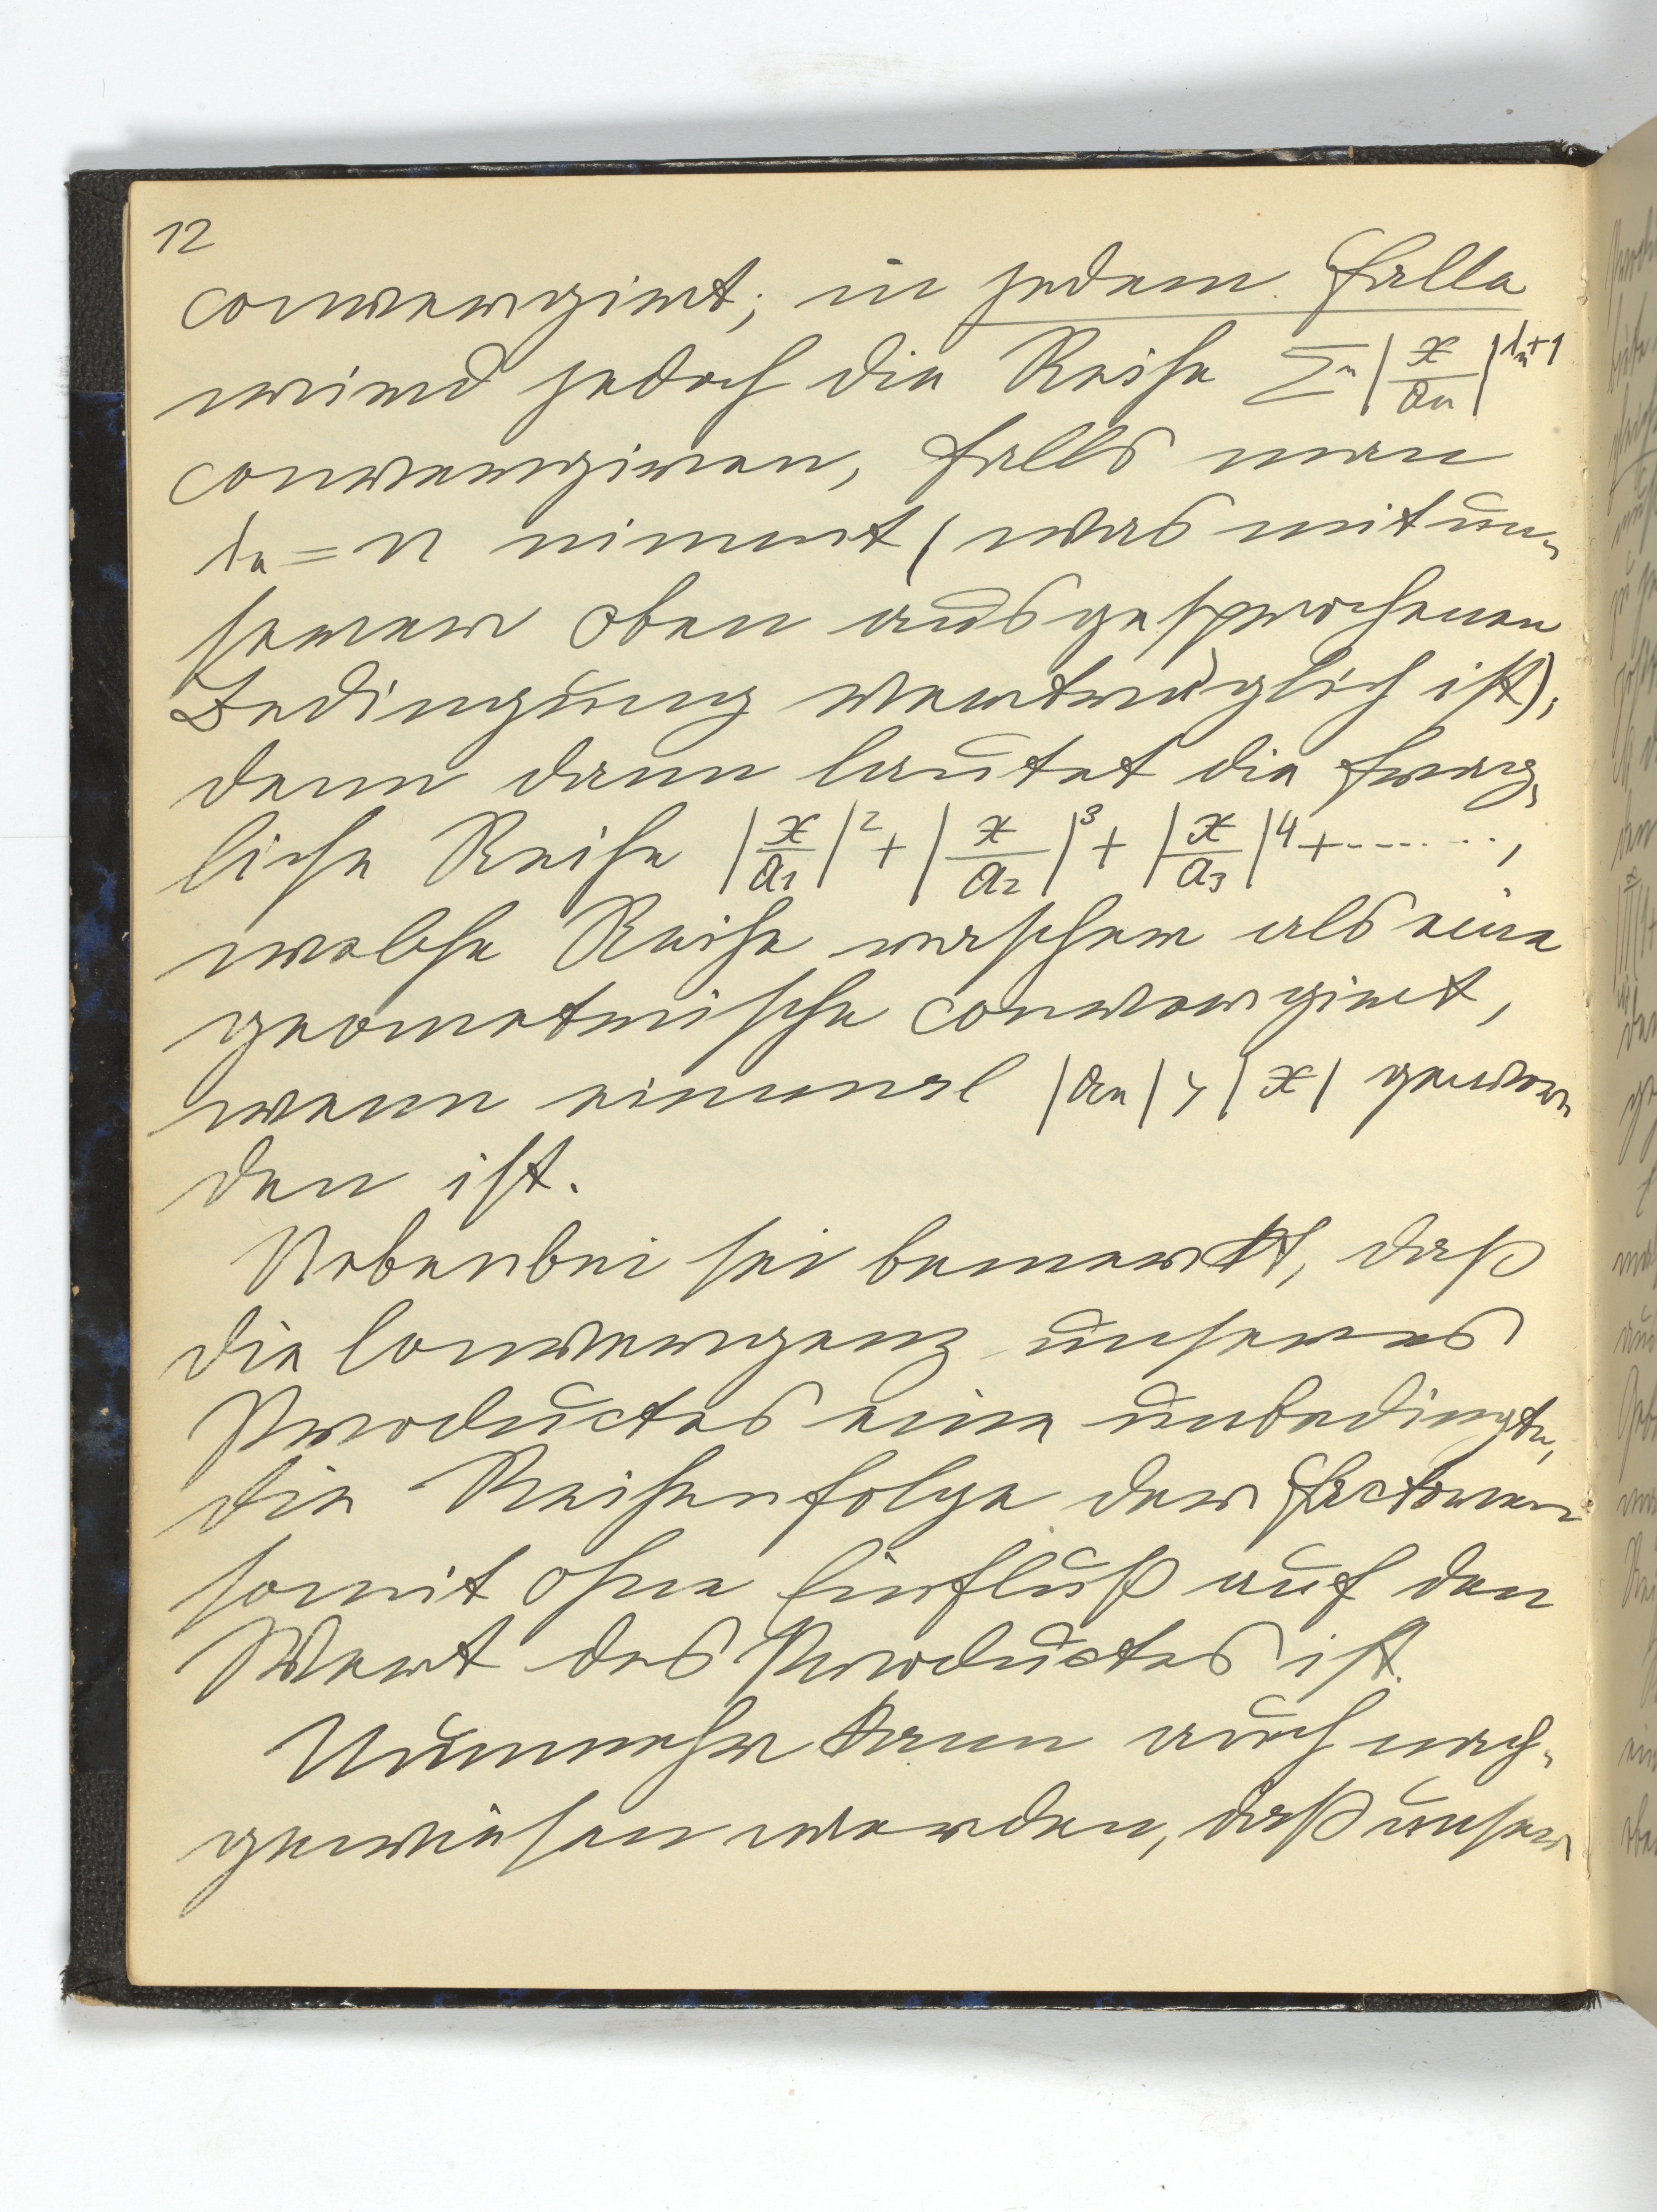 12
convergirt; in jedem Falle
wird jedoch die Reihe Σₙ |x/aₙ|^(λₙ+1)
convergiren, falls man
λₙ = n nimmt (was mit un-
serer oben ausgesprochenen
Bedingung verträglich ist);
denn dann lautet die frag-
liche Reihe |x/a₁|² + |x/a₂|³ + |x/a₃|⁴ + ......,
welche Reihe rascher als eine
geometrische convergirt,
wenn einmal |aₙ| > |x| gewor-
den ist.
Nebenbei sei bemerkt, daß
die Convergenz unseres
Productes eine unbedingte,
die Reihenfolge der Factoren
somit ohne Einfluß auf den
Wert des Productes ist.
Nunmehr kann auch nach-
gewiesen werden, daß unser